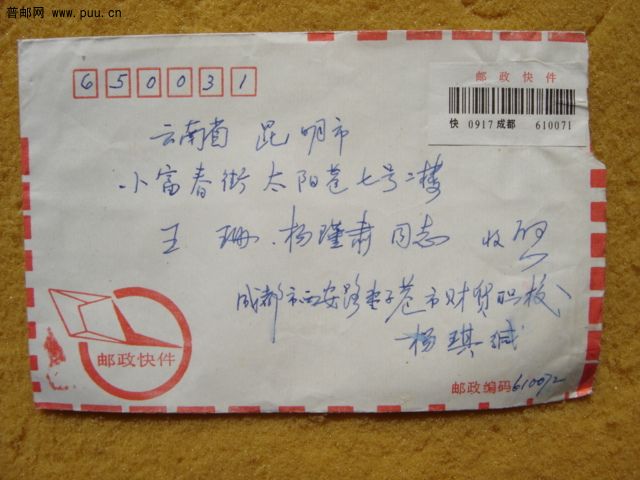 普邮网 www.puu.cn
650031
邮政快件
快 0917 成都 610071
云南省 昆明市
小富春街太阳巷七号二楼
王 珊、杨瑾肃同志 收
成都市西安路枣子巷市财贸职校
杨琪缄
邮政快件
邮政编码610072